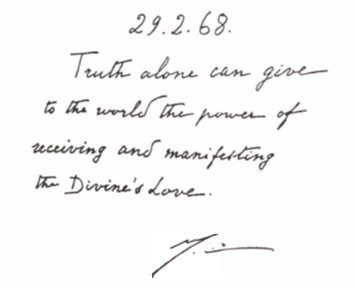 29.2.68.
Truth alone can give
to the world the power of
receiving and manifesting
the Divine's Love.